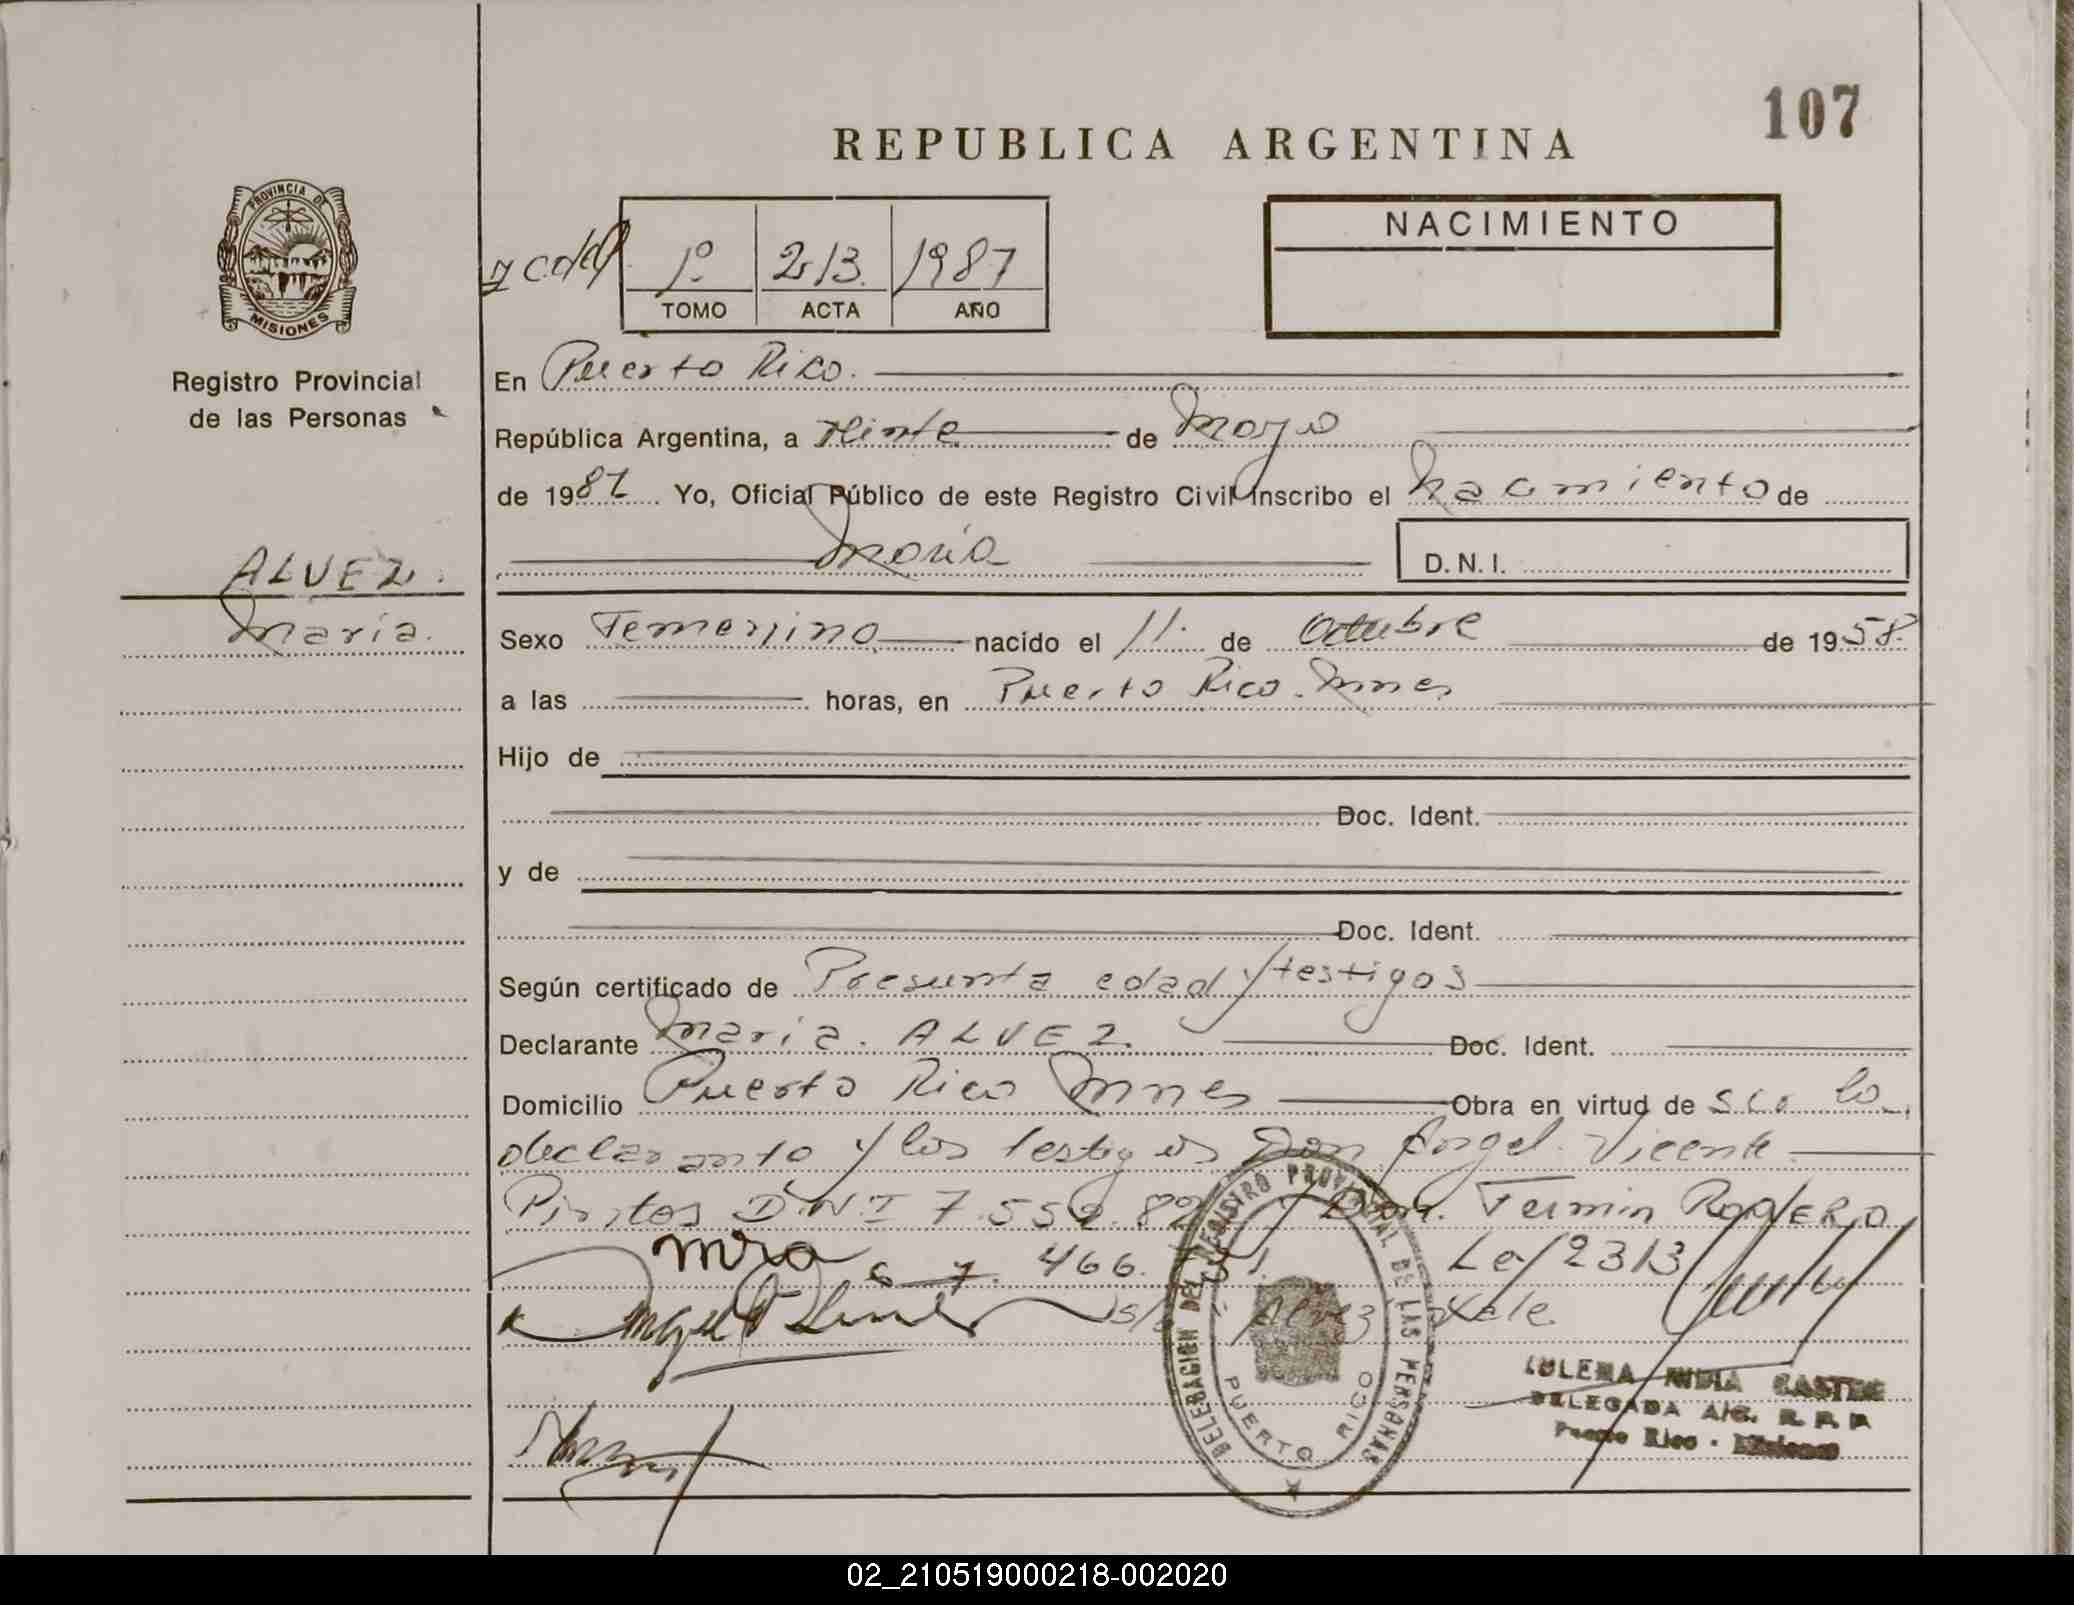 107
REPUBLICA ARGENTINA
PROVINCIA DE
MISIONES
NACIMIENTO
1º 213. 1987
TOMO ACTA AÑO
Registro Provincial
de las Personas
ALVEZ.
María.
En Puerto Rico.
República Argentina, a veinte de Mayo
de 1987 Yo, Oficial Público de este Registro Civil Inscribo el nacimiento de
María
D. N. I.
Sexo Femenino nacido el 11. de Octubre de 1958.
a las horas, en Puerto Rico. Mnes
Hijo de
Doc. Ident.
y de
Doc. Ident.
Según certificado de Presunta edad y testigos
Declarante María. ALVEZ. Doc. Ident.
Domicilio Puerto Rico Mnes Obra en virtud de ser la
declarante y los testigos Don Angel Vicente
Pintos D.N.I 7.550. y Don. Fermin
466. Ley 2313
Alvez Vale.
DELEGACION DEL REGISTRO PROVINCIAL DE LAS PERSONAS
PUERTO RICO
NIDIA
DELEGADA A/C. R. P. P.
Puerto Rico - Misiones
02_210519000218-002020